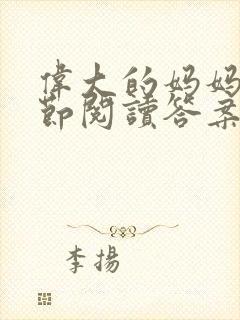 偉大的妈妈
節閱讀答案
李揚